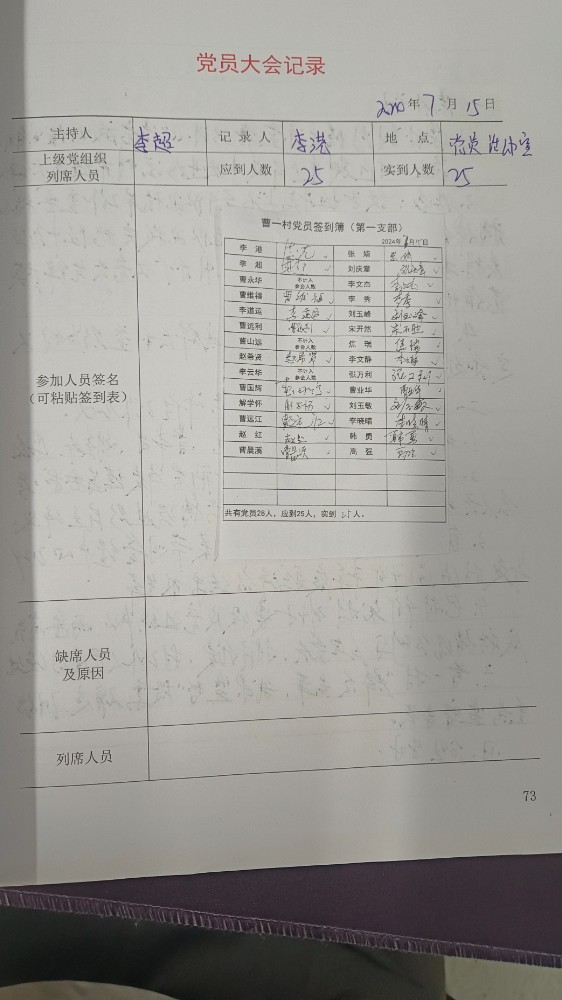 党员大会记录
年 7 月 15 日
主持人 李超 记录人 李港 地点 党员活动室
上级党组织
列席人员 应到人数 25 实到人数 25
参加人员签名
(可粘贴签到表)
曹一村党员签到簿(第一支部)
2024年 月15日
李港 张
李超 刘庆章
曹永华 不计入参会人数 李文杰
曹维禧 曹维禧 李秀 李秀
李道运 刘玉峰 刘玉峰
曹远利 宋开然
曹山远 不计入参会人数 焦瑞 焦瑞
赵希贤 赵希贤 李文静 李文静
李云华 不计入参会人数 张万利 张万利
曹国辉 曹业华 曹业华
解学怀 刘玉敏 刘玉敏
曹远江 李晓晴 李晓晴
赵红 赵红 韩勇 韩勇
曹晨溪 高强
共有党员28人,应到25人,实到25人。
缺席人员
及原因
列席人员
73